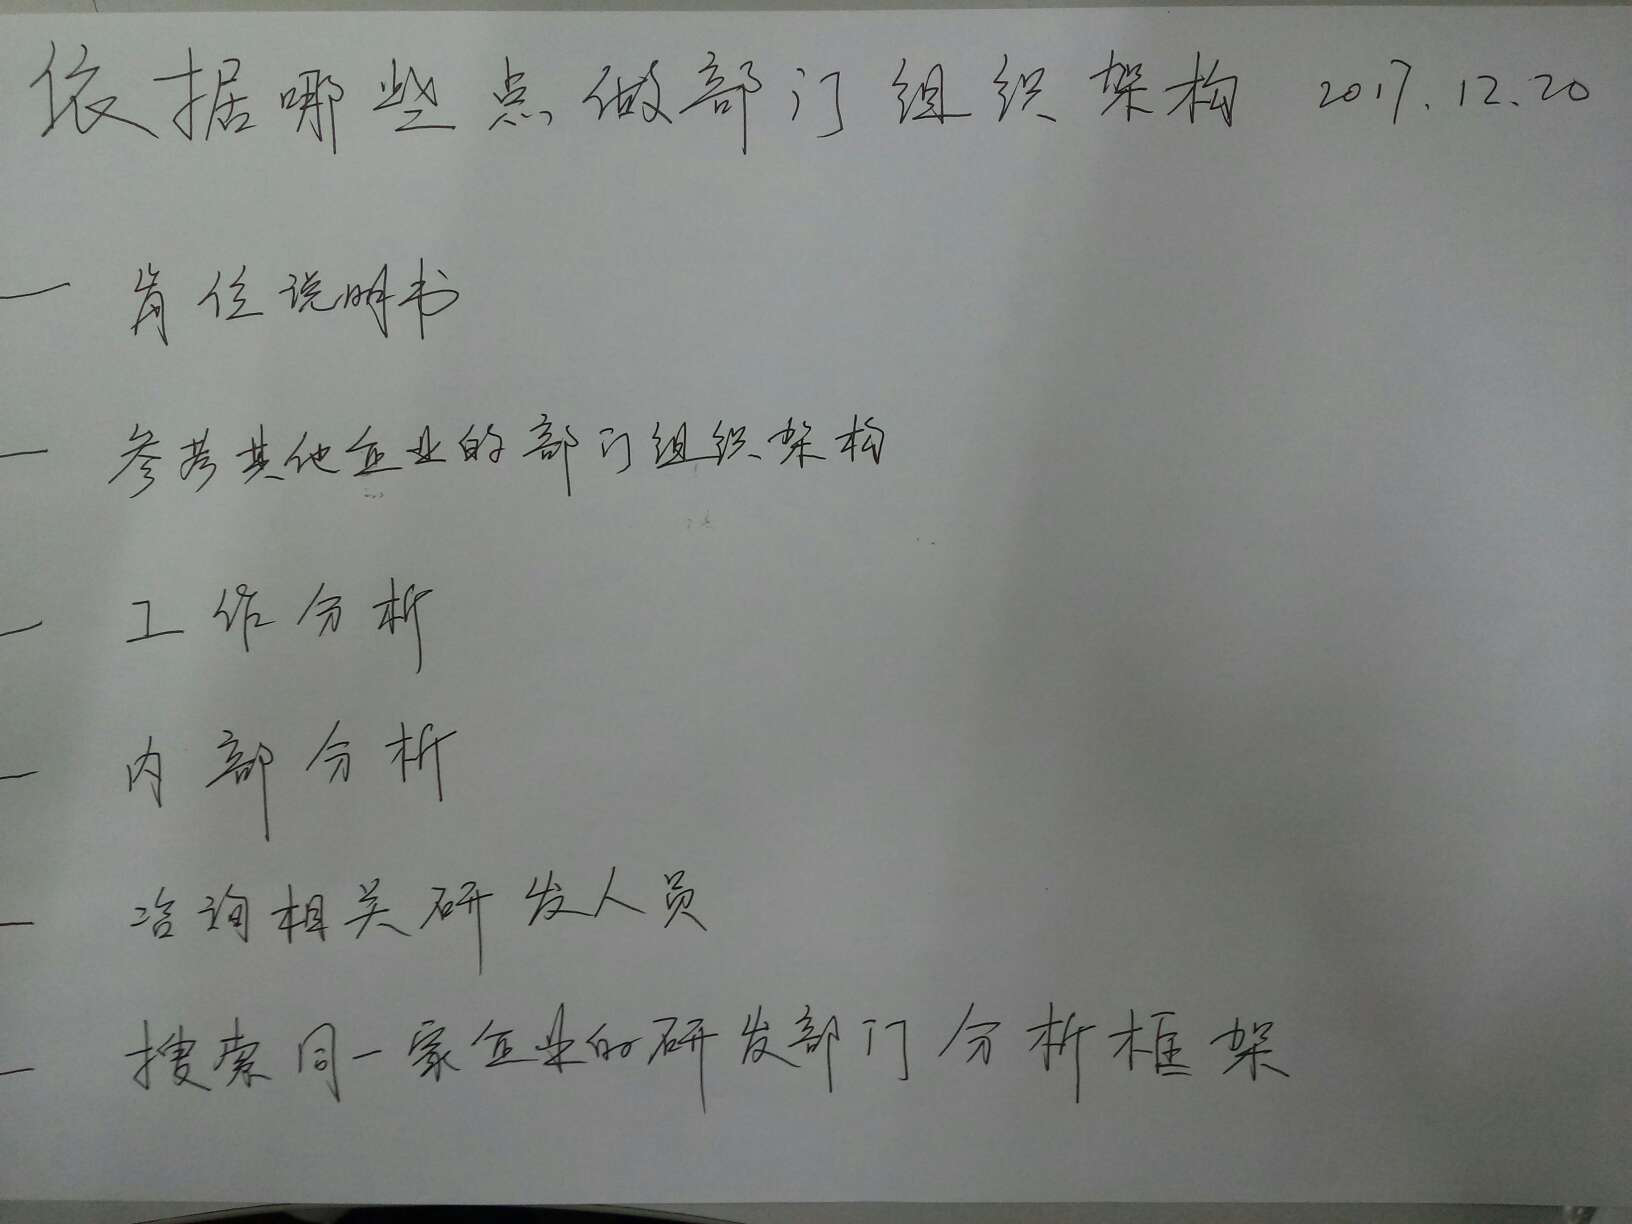 依据哪些点做部门组织架构 2017.12.20
— 岗位说明书
— 参考其他企业的部门组织架构
— 工作分析
— 内部分析
— 咨询相关研发人员
— 搜索同一家企业的研发部门分析框架